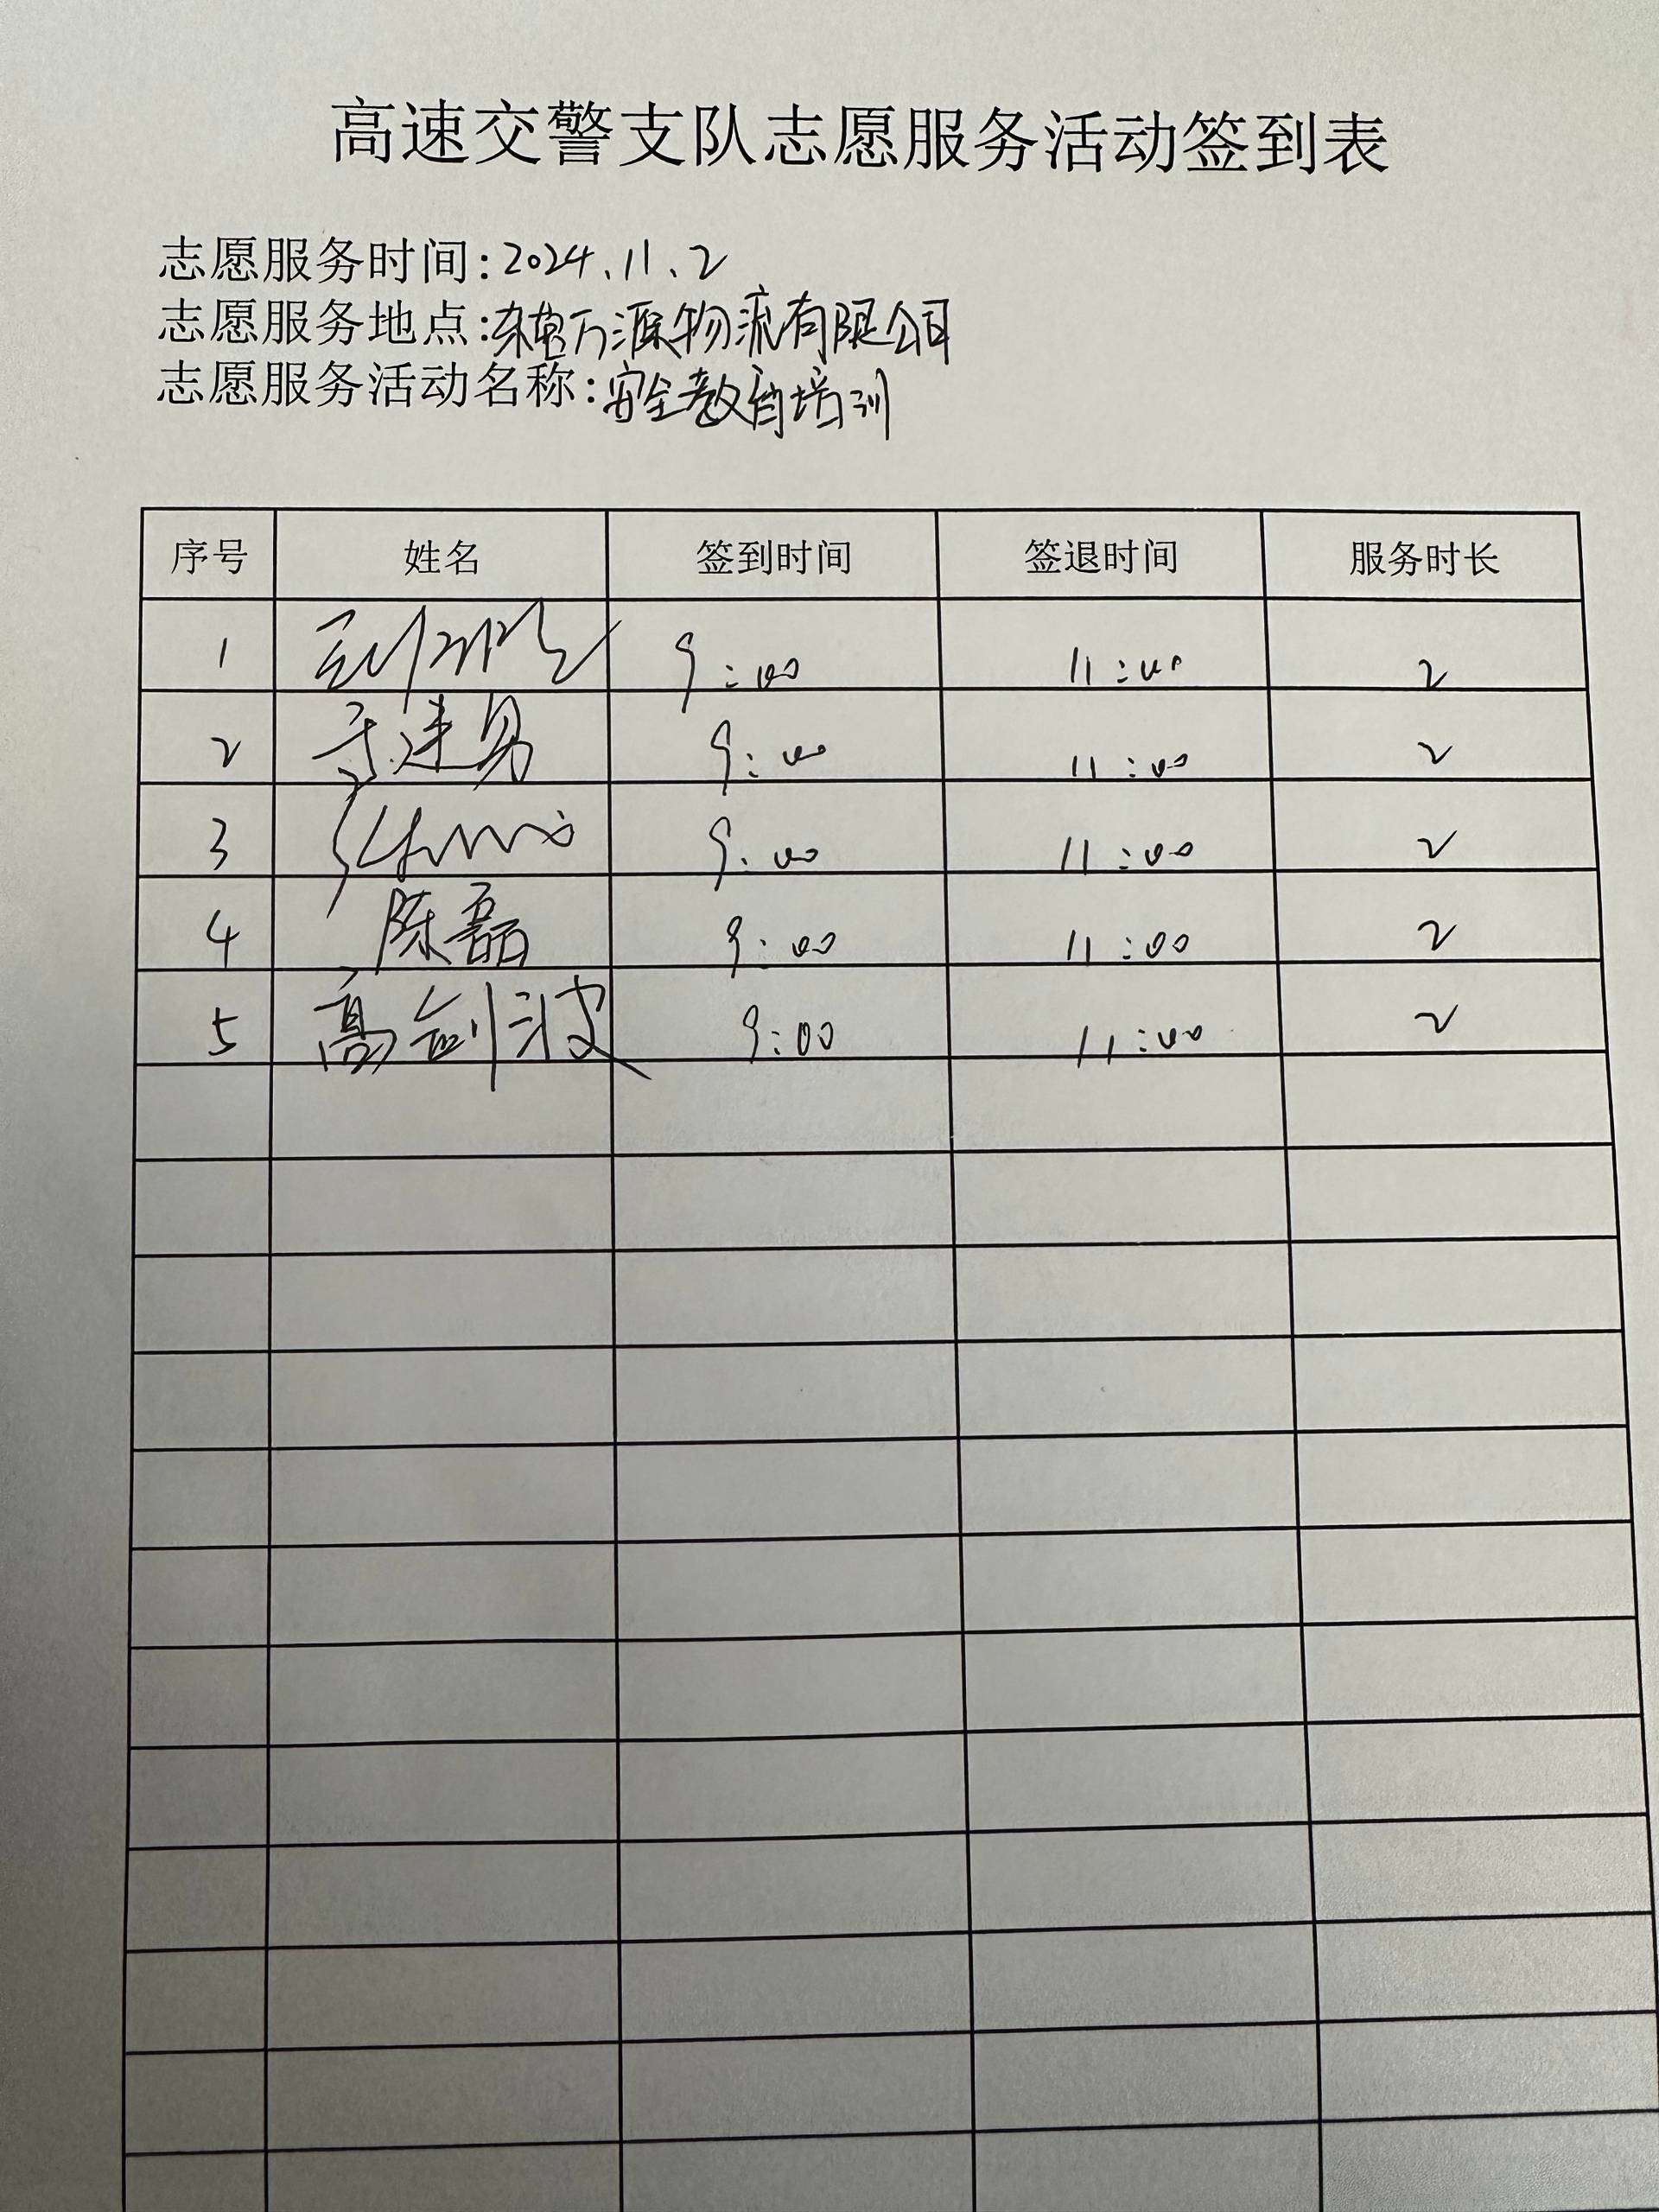 高速交警支队志愿服务活动签到表
志愿服务时间:2024.11.2
志愿服务地点:万源物流有限公司
志愿服务活动名称:安全教育培训
序号 姓名 签到时间 签退时间 服务时长
1 9:00 11:00 2
2 9:00 11:00 2
3 9:00 11:00 2
4 陈磊 9:00 11:00 2
5 高剑波 9:00 11:00 2